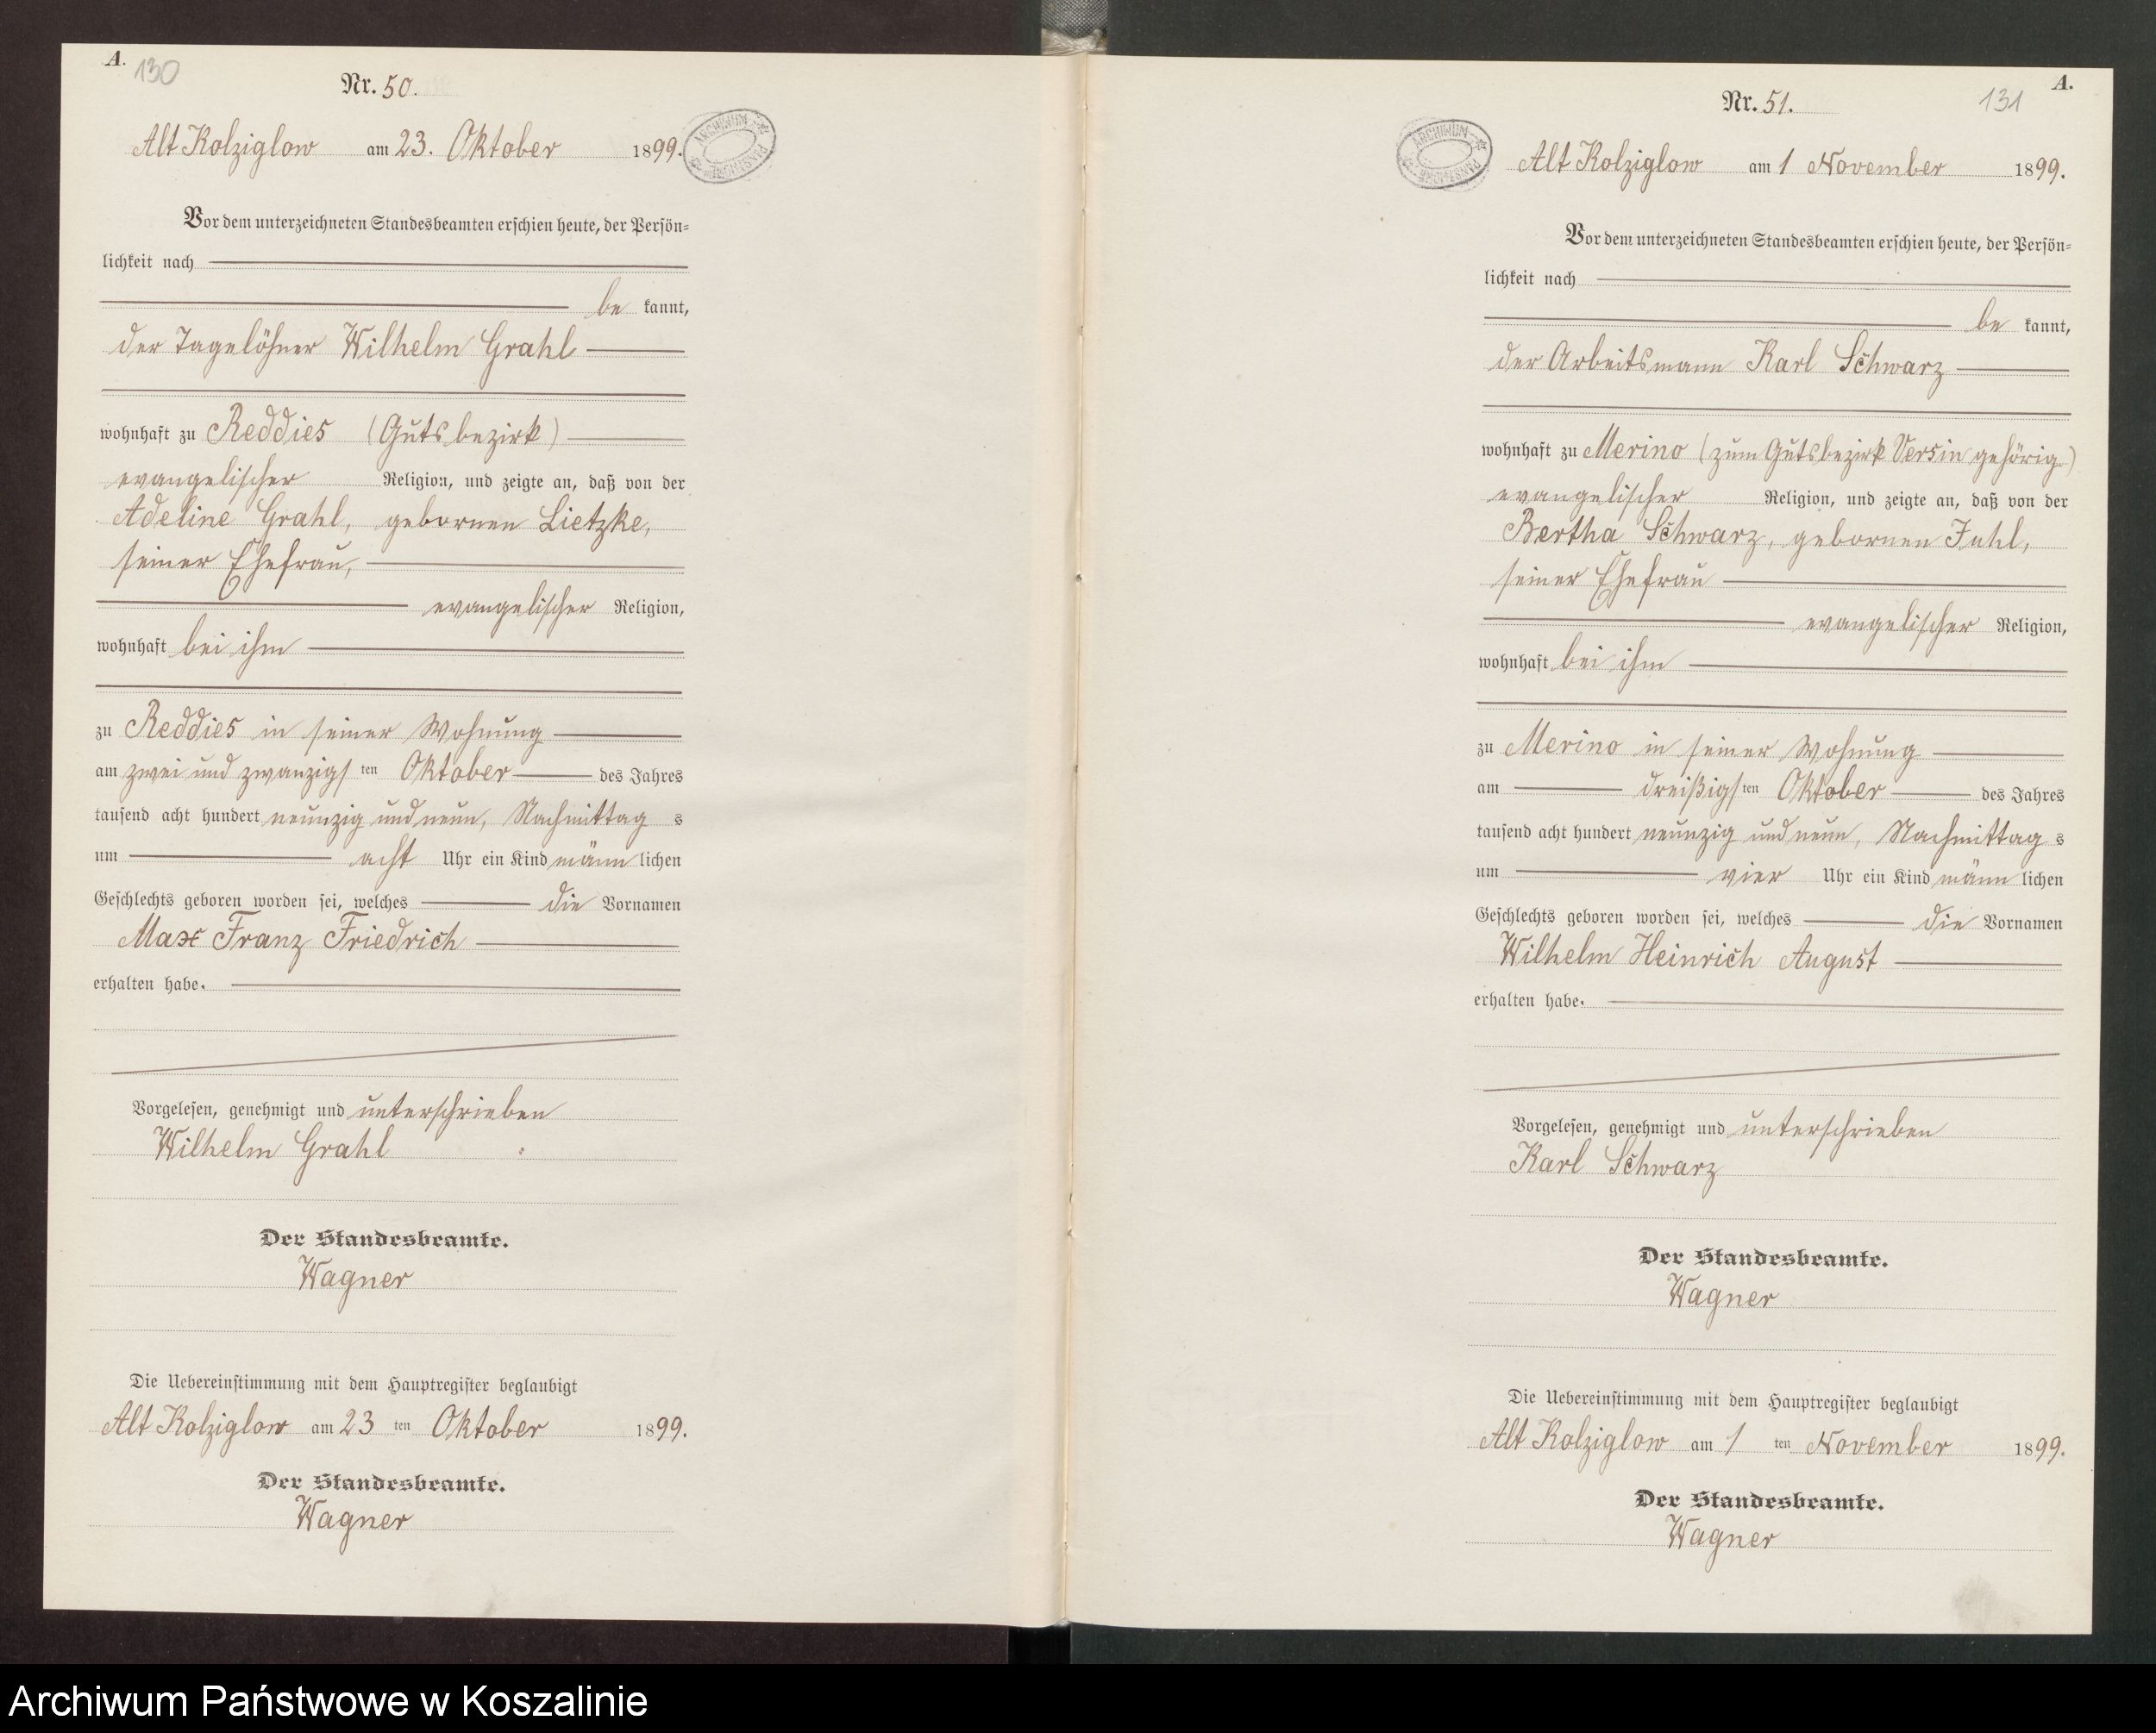 A.
130
Nr. 50.
Alt Kolziglow am 23. Oktober 1899.
ARCHIWUM PAŃSTWOWE
Vor dem unterzeichneten Standesbeamten erschien heute, der Persön=
lichkeit nach
be kannt,
der Tagelöhner Wilhelm Grahl
wohnhaft zu Reddies (Gutsbezirk)
evangelischer Religion, und zeigte an, daß von der
Adeline Grahl, gebornen Lietzke,
seiner Ehefrau,
evangelischer Religion,
wohnhaft bei ihm
zu Reddies in seiner Wohnung
am zwei und zwanzigs ten Oktober des Jahres
tausend acht hundert neunzig und neun, Nachmittag s
um acht Uhr ein Kind männ lichen
Geschlechts geboren worden sei, welches die Vornamen
Max Franz Friedrich
erhalten habe.
Vorgelesen, genehmigt und unterschrieben
Wilhelm Grahl
Der Standesbeamte.
Wagner
Die Uebereinstimmung mit dem Hauptregister beglaubigt
Alt Kolziglow am 23 ten Oktober 1899.
Der Standesbeamte.
Wagner
A.
131
Nr. 51.
ARCHIWUM PAŃSTWOWE
Alt Kolziglow am 1 November 1899.
Vor dem unterzeichneten Standesbeamten erschien heute, der Persön=
lichkeit nach
be kannt,
der Arbeitsmann Karl Schwarz
wohnhaft zu Merino (zum Gutsbezirk Versin gehörig)
evangelischer Religion, und zeigte an, daß von der
Bertha Schwarz, gebornen Juhl,
seiner Ehefrau
evangelischer Religion,
wohnhaft bei ihm
zu Merino in seiner Wohnung
am dreißigs ten Oktober des Jahres
tausend acht hundert neunzig und neun, Nachmittag s
um vier Uhr ein Kind männ lichen
Geschlechts geboren worden sei, welches die Vornamen
Wilhelm Heinrich August
erhalten habe.
Vorgelesen, genehmigt und unterschrieben
Karl Schwarz
Der Standesbeamte.
Wagner
Die Uebereinstimmung mit dem Hauptregister beglaubigt
Alt Kolziglow am 1 ten November 1899.
Der Standesbeamte.
Wagner
Archiwum Państwowe w Koszalinie